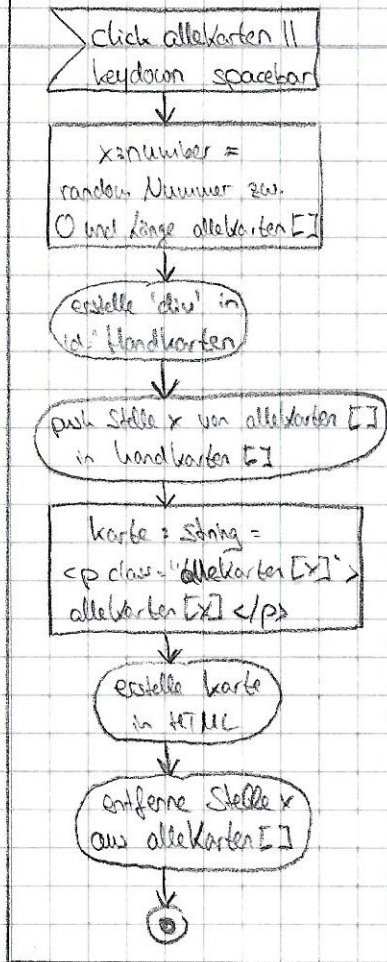 click alleKarten ||
keydown spacebar
x:number =
random Nummer zw.
0 und Länge alleKarten []
erstelle 'div' in
id="Handkarten
push Stelle x von alleKarten []
in handkarten []
karte : string =
<p class="alleKarten[x]">
alleKarten [x] </p>
erstelle karte
in HTML
entferne Stelle x
aus alleKarten []